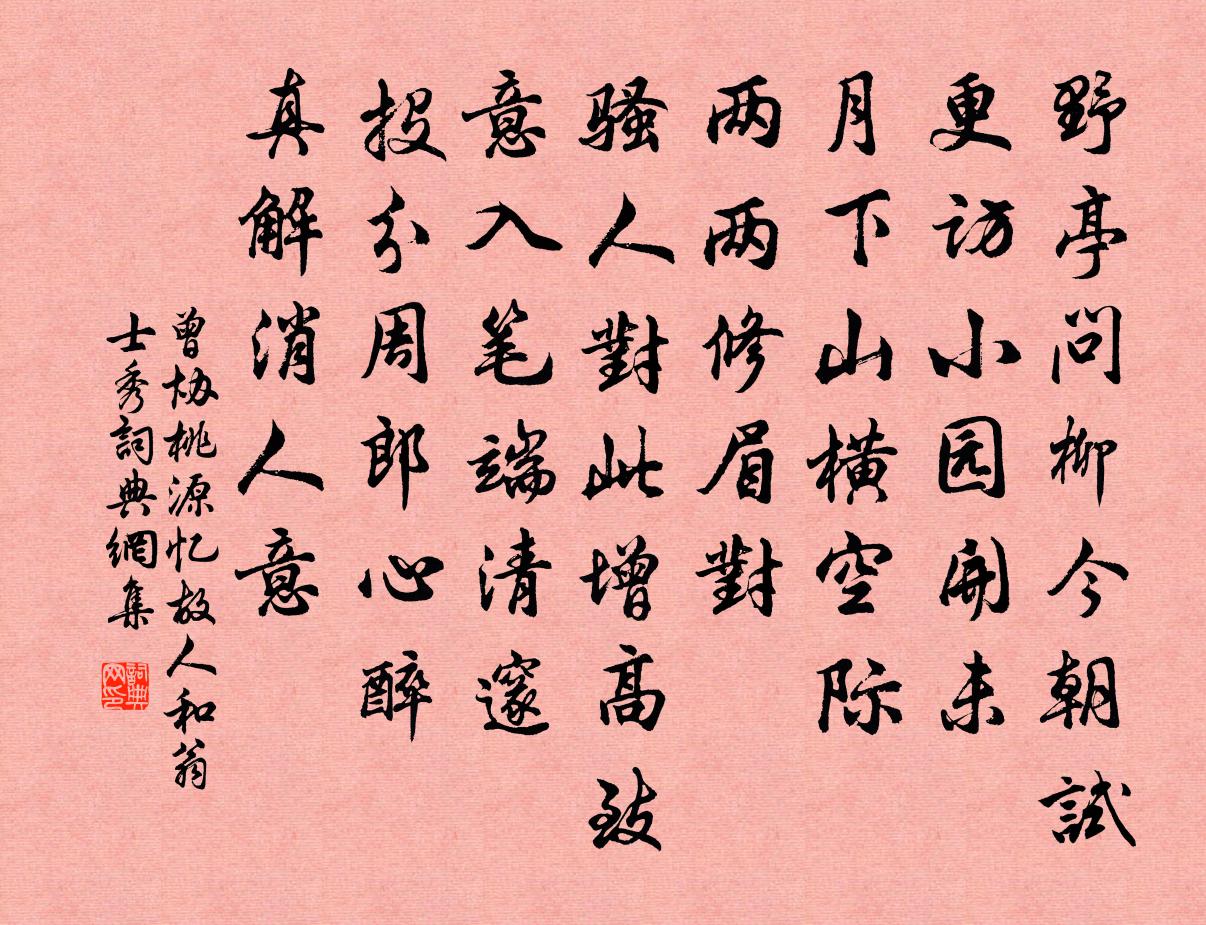 野亭问柳今朝試
更访小园開未
月下山横空际
两两修眉對
骚人對此增高致
意入笔端清邃
投分周郎心醉
真解消人意
曾协桃源忆故人和翁
士秀詞典網集
詞典网印